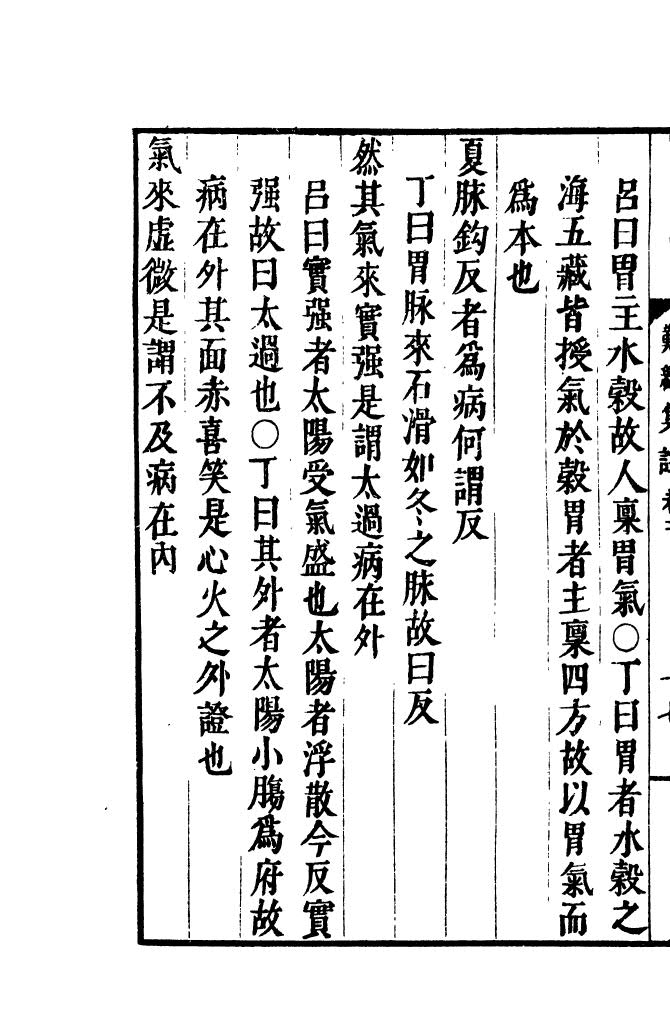 呂曰胃主水穀故人稟胃氣〇丁曰胃者水穀之
海五藏皆授氣於穀胃者主稟四方故以胃氣而
爲本也
夏脉鈎反者爲病何謂反
丁曰胃脉來石滑如冬之脉故曰反
然其氣來實强是謂太過病在外
呂曰實强者太陽受氣盛也太陽者浮散今反實
强故曰太過也〇丁曰其外者太陽小膓爲府故
病在外其面赤喜笑是心火之外證也
氣來虛微是謂不及病在內